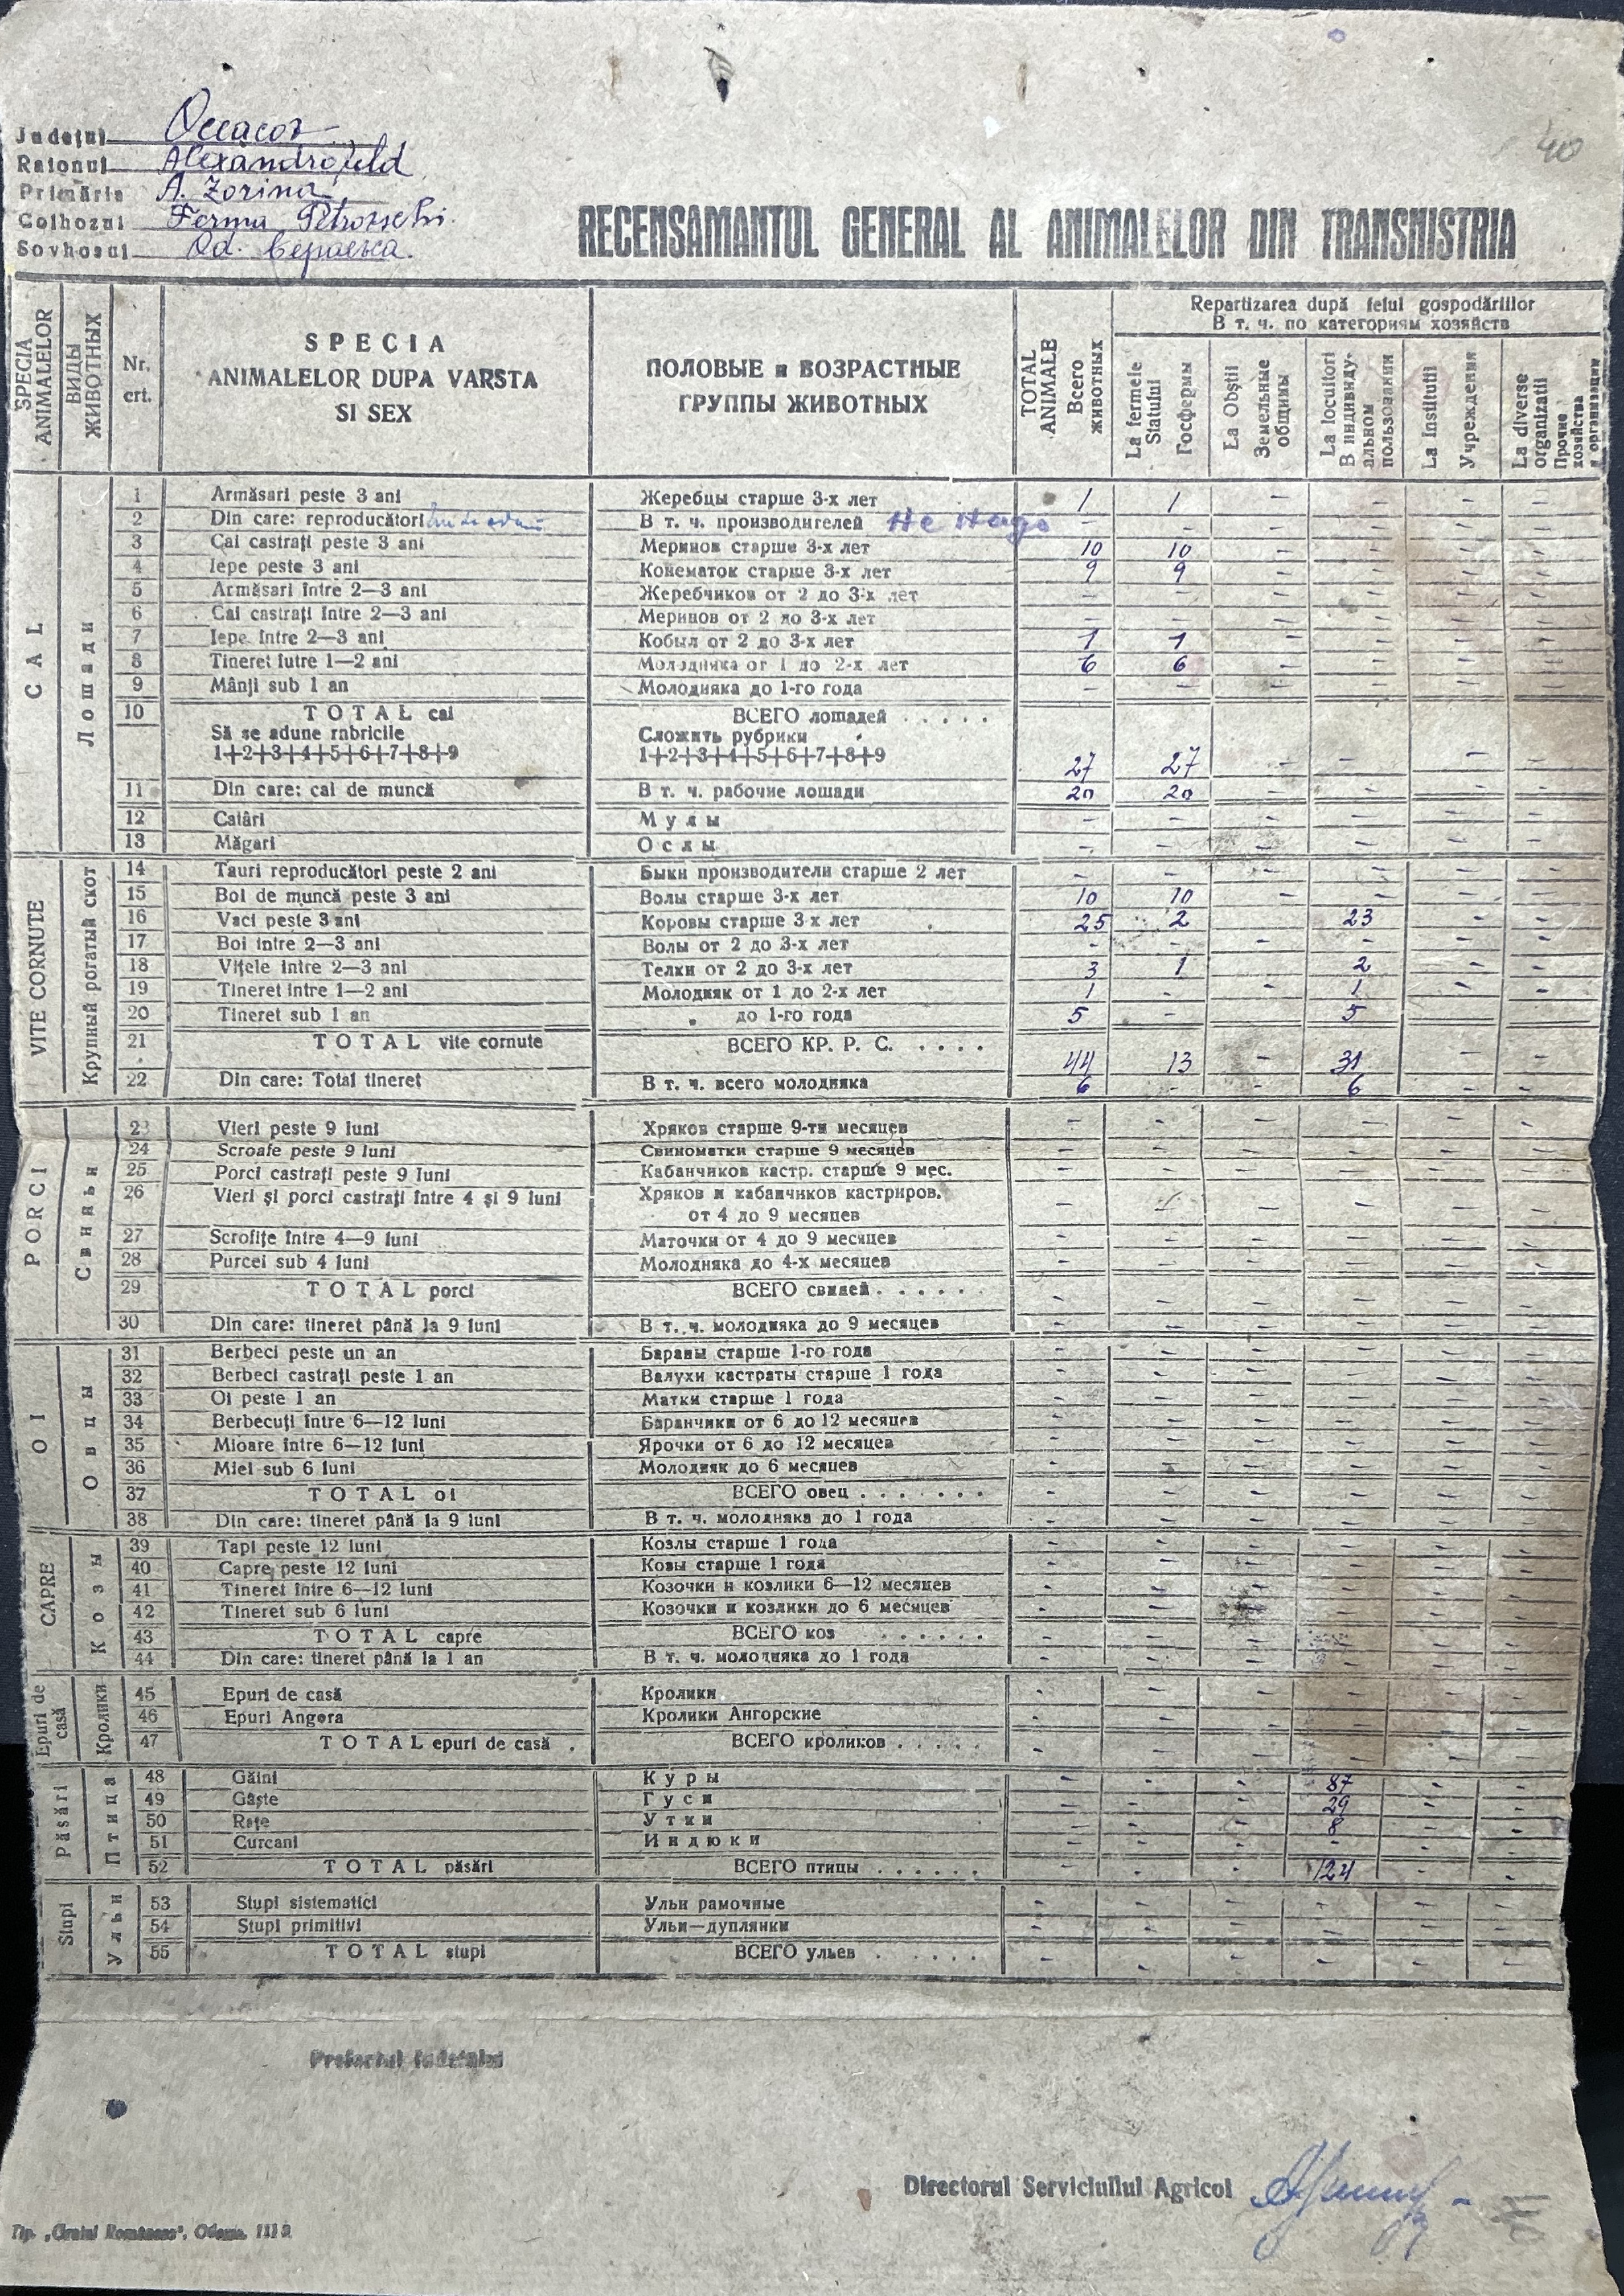 40
Judeţul Oceacov
Raionul Alexandrofeld
Primăria A. Zorina
Colhozul Ferma Petrovschi
Sovhosul Od.
RECENSAMANTUL GENERAL AL ANIMALELOR DIN TRANSNISTRIA
SPECIA ANIMALELOR ВИДЫ ЖИВОТНЫХ Nr. crt. SPECIA ANIMALELOR DUPA VARSTA SI SEX ПОЛОВЫЕ и ВОЗРАСТНЫЕ ГРУППЫ ЖИВОТНЫХ TOTAL ANIMALE Всего животных
Repartizarea după felul gospodăriilor
В т. ч. по категориям хозяйств
La fermele Statului Госфермы La Obştii Земельные общины La locuitori В индивиду-альном пользовании La Institutii Учреждения La diverse organizatii Прочие хозяйства и организации
CAL Лошади
1 Armăsari peste 3 ani Жеребцы старше 3-х лет 1 1 - - - -
2 Din care: reproducători В т. ч. производителей Не надо - - - - - -
3 Cai castraţi peste 3 ani Меринов старше 3-х лет 10 10 - - - -
4 Iepe peste 3 ani Конематок старше 3-х лет 9 9 - - - -
5 Armăsari între 2—3 ani Жеребчиков от 2 до 3-х лет - - - - - -
6 Cai castraţi între 2—3 ani Меринов от 2 до 3-х лет - - - - - -
7 Iepe între 2—3 ani Кобыл от 2 до 3-х лет 1 1 - - - -
8 Tineret îutre 1—2 ani Молодняка от 1 до 2-х лет 6 6 - - - -
9 Mânji sub 1 an Молодняка до 1-го года - - - - - -
10 TOTAL cai ВСЕГО лошадей . . . . .
Să se adune rabricile Сложить рубрики
1+2+3+4+5+6+7+8+9 1+2+3+4+5+6+7+8+9 27 27 - - - -
11 Din care: cai de muncă В т. ч. рабочие лошади 20 20 - - - -
12 Catâri Мулы - - - - - -
13 Măgari Ослы - - - - - -
VITE CORNUTE Крупный рогатый скот
14 Tauri reproducători peste 2 ani Быки производители старше 2 лет - - - - - -
15 Boi de muncă peste 3 ani Волы старше 3-х лет 10 10 - - - -
16 Vaci peste 3 ani Коровы старше 3-х лет 25 2 - 23 - -
17 Boi intre 2—3 ani Волы от 2 до 3-х лет - - - - - -
18 Viţele între 2—3 ani Телки от 2 до 3-х лет 3 1 - 2 - -
19 Tineret intre 1—2 ani Молодняк от 1 до 2-х лет 1 - - 1 - -
20 Tineret sub 1 an „ до 1-го года 5 - - 5 - -
21 TOTAL vite cornute ВСЕГО КР. Р. С. . . . . 44 13 - 31 - -
22 Din care: Total tineret В т. ч. всего молодняка 6 - - 6 - -
PORCI Свиньи
23 Vieri peste 9 luni Хряков старше 9-ти месяцев - - - - - -
24 Scroafe peste 9 luni Свиноматки старше 9 месяцев - - - - - -
25 Porci castraţi peste 9 luni Кабанчиков кастр. старше 9 мес. - - - - - -
26 Vieri şi porci castraţi între 4 şi 9 luni Хряков и кабанчиков кастриров.
от 4 до 9 месяцев - - - - - -
27 Scrofiţe între 4—9 luni Маточки от 4 до 9 месяцев - - - - - -
28 Purcei sub 4 luni Молодняка до 4-х месяцев - - - - - -
29 TOTAL porci ВСЕГО свиней . . . . . . - - - - - -
30 Din care: tineret până la 9 luni В т. ч. молодняка до 9 месяцев - - - - - -
OI Овцы
31 Berbeci peste un an Бараны старше 1-го года - - - - - -
32 Berbeci castraţi peste 1 an Валухи кастраты старше 1 года - - - - - -
33 Oi peste 1 an Матки старше 1 года - - - - - -
34 Berbecuţi între 6—12 luni Баранчики от 6 до 12 месяцев - - - - - -
35 Mioare între 6—12 luni Ярочки от 6 до 12 месяцев - - - - - -
36 Miei sub 6 luni Молодняк до 6 месяцев - - - - - -
37 TOTAL oi ВСЕГО овец . . . . . . . - - - - - -
38 Din care: tineret până la 9 luni В т. ч. молодняка до 1 года - - - - - -
CAPRE Козы
39 Tapi peste 12 luni Козлы старше 1 года - - - - - -
40 Capre peste 12 luni Козы старше 1 года - - - - - -
41 Tineret între 6—12 luni Козочки и козлики 6—12 месяцев - - - - - -
42 Tineret sub 6 luni Козочки и козлики до 6 месяцев - - - - - -
43 TOTAL capre ВСЕГО коз . . . . . . - - - - - -
44 Din care: tineret până la 1 an В т. ч. молодняка до 1 года - - - - - -
Epuri de casă Кролики
45 Epuri de casă Кролики - - - - - -
46 Epuri Angora Кролики Ангорские - - - - - -
47 TOTAL epuri de casă . ВСЕГО кроликов . . . . . - - - - - -
Păsări Птица
48 Găini Куры - - - 87 - -
49 Gâşte Гуси - - - 29 - -
50 Raţe Утки - - - 8 - -
51 Curcani Индюки - - - - - -
52 TOTAL păsări ВСЕГО птицы . . . . . . - - - 124 - -
Stupi Ульи
53 Stupi sistematici Ульи рамочные - - - - - -
54 Stupi primitivi Ульи—дуплянки - - - - - -
55 TOTAL stupi ВСЕГО ульев . . . . . . - - - - - -
Prefectul Judeţului
Directorul Serviciului Agricol
Tip. „Graiul Românesc“, Odessa.